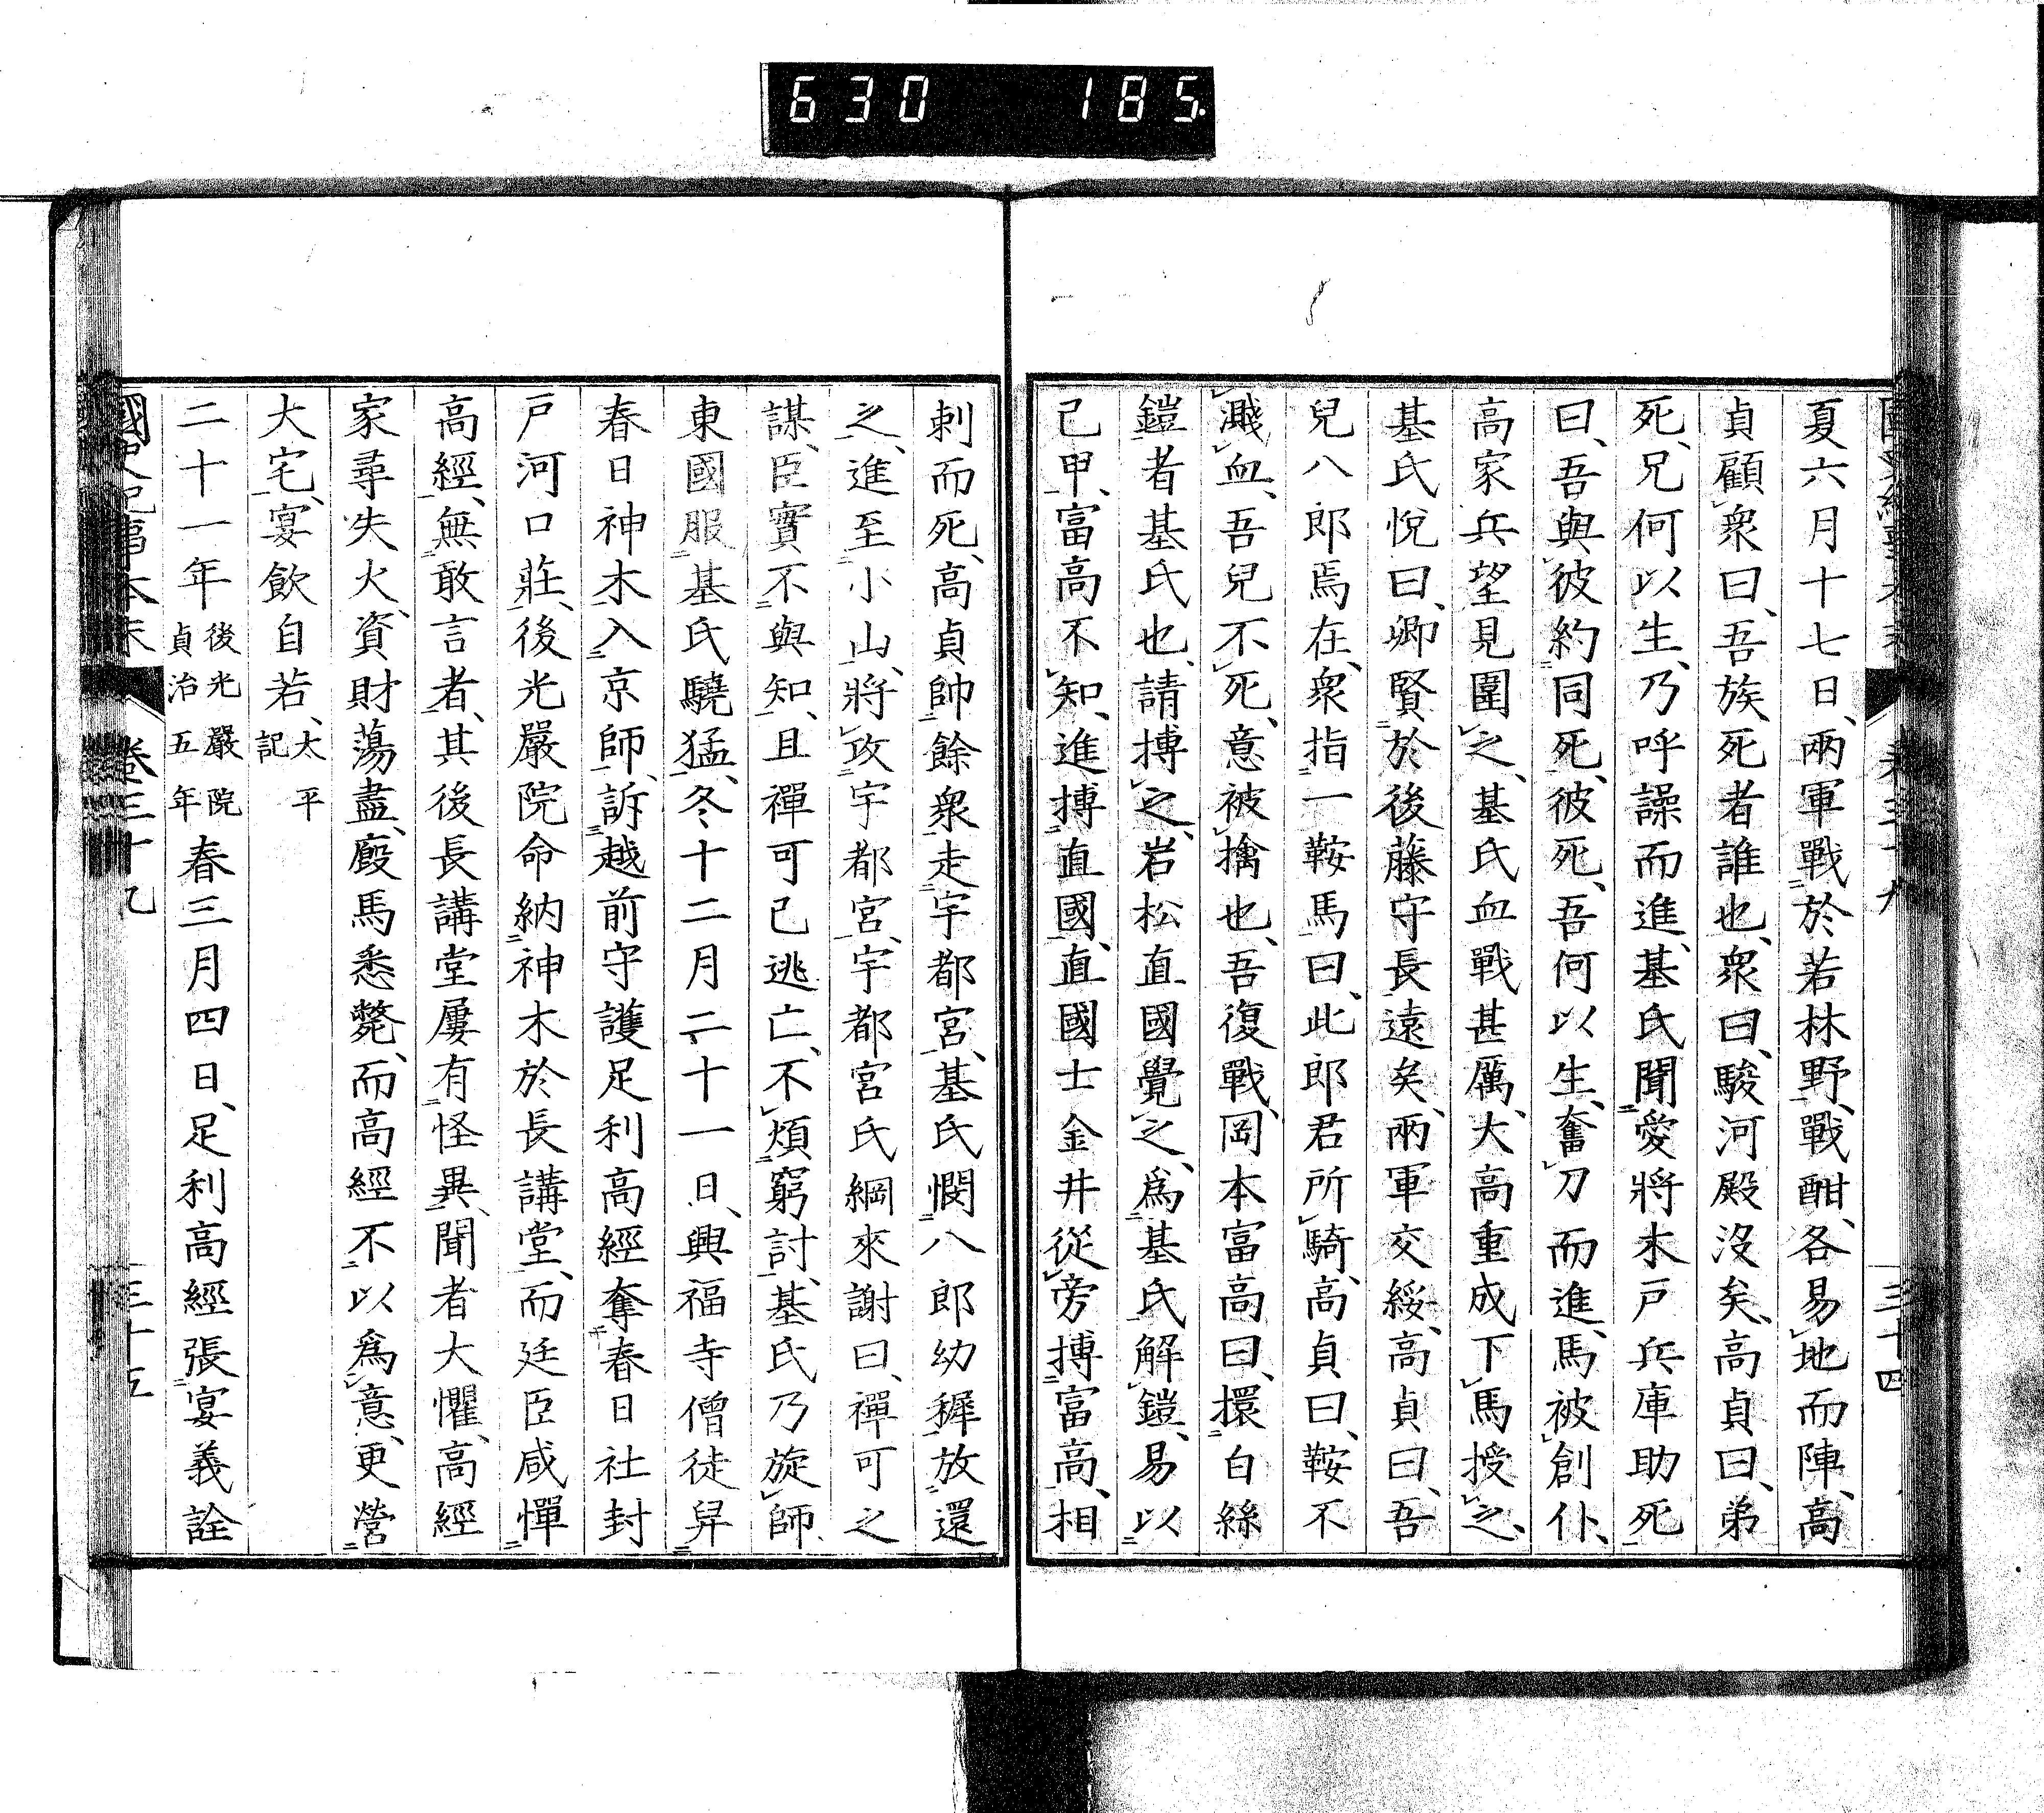 630 185.
夏六月十七日、兩軍戰於若林野、戰酣、各易地而陣、高
貞顧衆曰、吾族死者誰也、衆曰、駿河殿沒矣、高貞曰、弟
死、兄何以生、乃呼譟而進、基氏聞愛將木戸兵庫助死
曰、吾與彼約同死、彼死、吾何以生、奮刀而進、馬被創仆、
高家兵望見圍之、基氏血戰甚厲、大高重成下馬授之、
基氏悅曰、卿賢於後藤守長遠矣、兩軍交綏、高貞曰、吾
兒八郎焉在、衆指一鞍馬曰、此郎君所騎、高貞曰、鞍不
濺血、吾兒不死、意被擒也、吾復戰、岡本富高曰、擐白絲
鎧者基氏也、請搏之、岩松直國覺之、爲基氏解鎧、易以
己甲、富高不知、進搏直國、直國士金井從旁搏富高、相
刺而死、高貞帥餘衆走宇都宮、基氏憫八郎幼穉、放還
之、進至小山、將攻宇都宮、宇都宮氏綱來謝曰、禪可之
謀、臣實不與知、且禪可已逃亡、不煩窮討、基氏乃旋師、
東國服基氏驍猛、冬十二月二十一日、興福寺僧徒舁
春日神木入京師、訴越前守護足利高經奪春日社封
戸河口莊、後光嚴院命納神木於長講堂、而廷臣咸憚
高經、無敢言者、其後長講堂屢有怪異、聞者大懼、高經
家尋失火、資財蕩盡、廄馬悉斃、而高經不以爲意、更營
大宅、宴飲自若、太平記
二十一年後光嚴院貞治五年春三月四日、足利高經張宴義詮
國史紀事本末 卷三十九 三十五